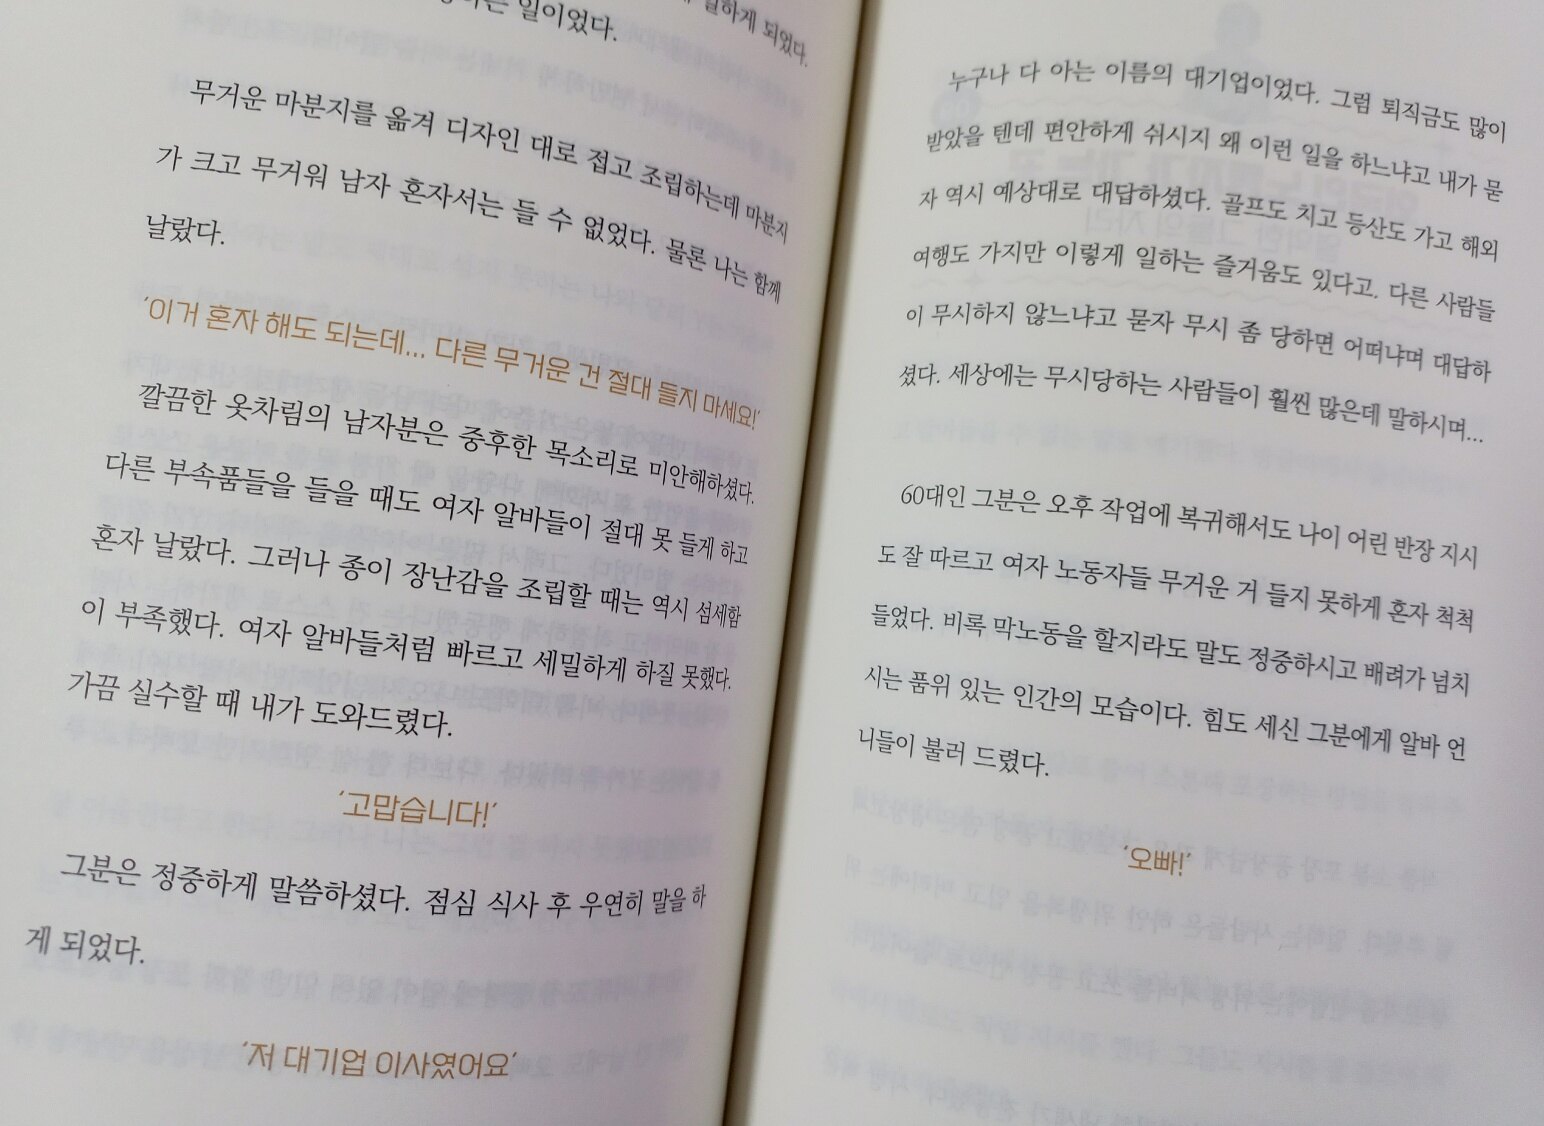 일하게 되었다.
일이었다.
무거운 마분지를 옮겨 디자인 대로 접고 조립하는데 마분지
가 크고 무거워 남자 혼자서는 들 수 없었다. 물론 나는 함께
날랐다.
‘이거 혼자 해도 되는데... 다른 무거운 건 절대 들지 마세요!’
깔끔한 옷차림의 남자분은 중후한 목소리로 미안해하셨다.
다른 부속품들을 들을 때도 여자 알바들이 절대 못 들게 하고
혼자 날랐다. 그러나 종이 장난감을 조립할 때는 역시 섬세함
이 부족했다. 여자 알바들처럼 빠르고 세밀하게 하질 못했다.
가끔 실수할 때 내가 도와드렸다.
‘고맙습니다!’
그분은 정중하게 말씀하셨다. 점심 식사 후 우연히 말을 하
게 되었다.
‘저 대기업 이사였어요’
누구나 다 아는 이름의 대기업이었다. 그럼 퇴직금도 많이
받았을 텐데 편안하게 쉬시지 왜 이런 일을 하느냐고 내가 묻
자 역시 예상대로 대답하셨다. 골프도 치고 등산도 가고 해외
여행도 가지만 이렇게 일하는 즐거움도 있다고. 다른 사람들
이 무시하지 않느냐고 묻자 무시 좀 당하면 어떠냐며 대답하
셨다. 세상에는 무시당하는 사람들이 훨씬 많은데 말하시며...
60대인 그분은 오후 작업에 복귀해서도 나이 어린 반장 지시
도 잘 따르고 여자 노동자들 무거운 거 들지 못하게 혼자 척척
들었다. 비록 막노동을 할지라도 말도 정중하시고 배려가 넘치
시는 품위 있는 인간의 모습이다. 힘도 세신 그분에게 알바 언
니들이 불러 드렸다.
‘오빠!’